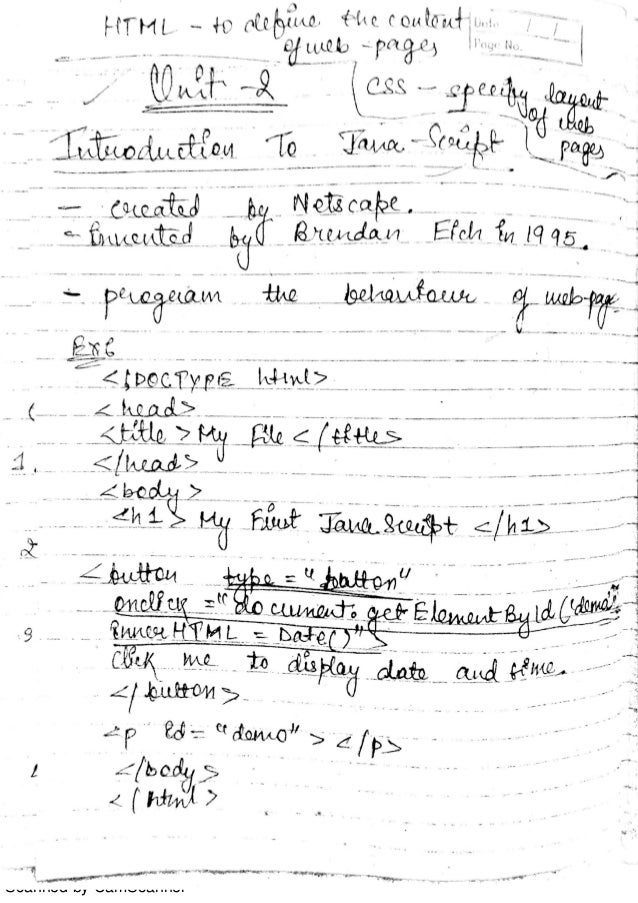 HTML - to define the content
of web - pages
Date / /
Page No.
Unit - 2
CSS - specify layout
of web
pages
Introduction To Java-Script
- created by Netscape.
- Invented by Brendan Eich in 1995.
- program the behaviour of web-page
Ex:
<!DOCTYPE html>
<head>
<title> My File </title>
1. </head>
<body>
<h1> My First Java Script </h1>
2
<button type = "button"
onclick = "document.getElementById('demo').
3 innerHTML = Date()">
Click me to display date and time.
</button>
<p id = "demo"> </p>
</body>
</html>
Scanned by CamScanner